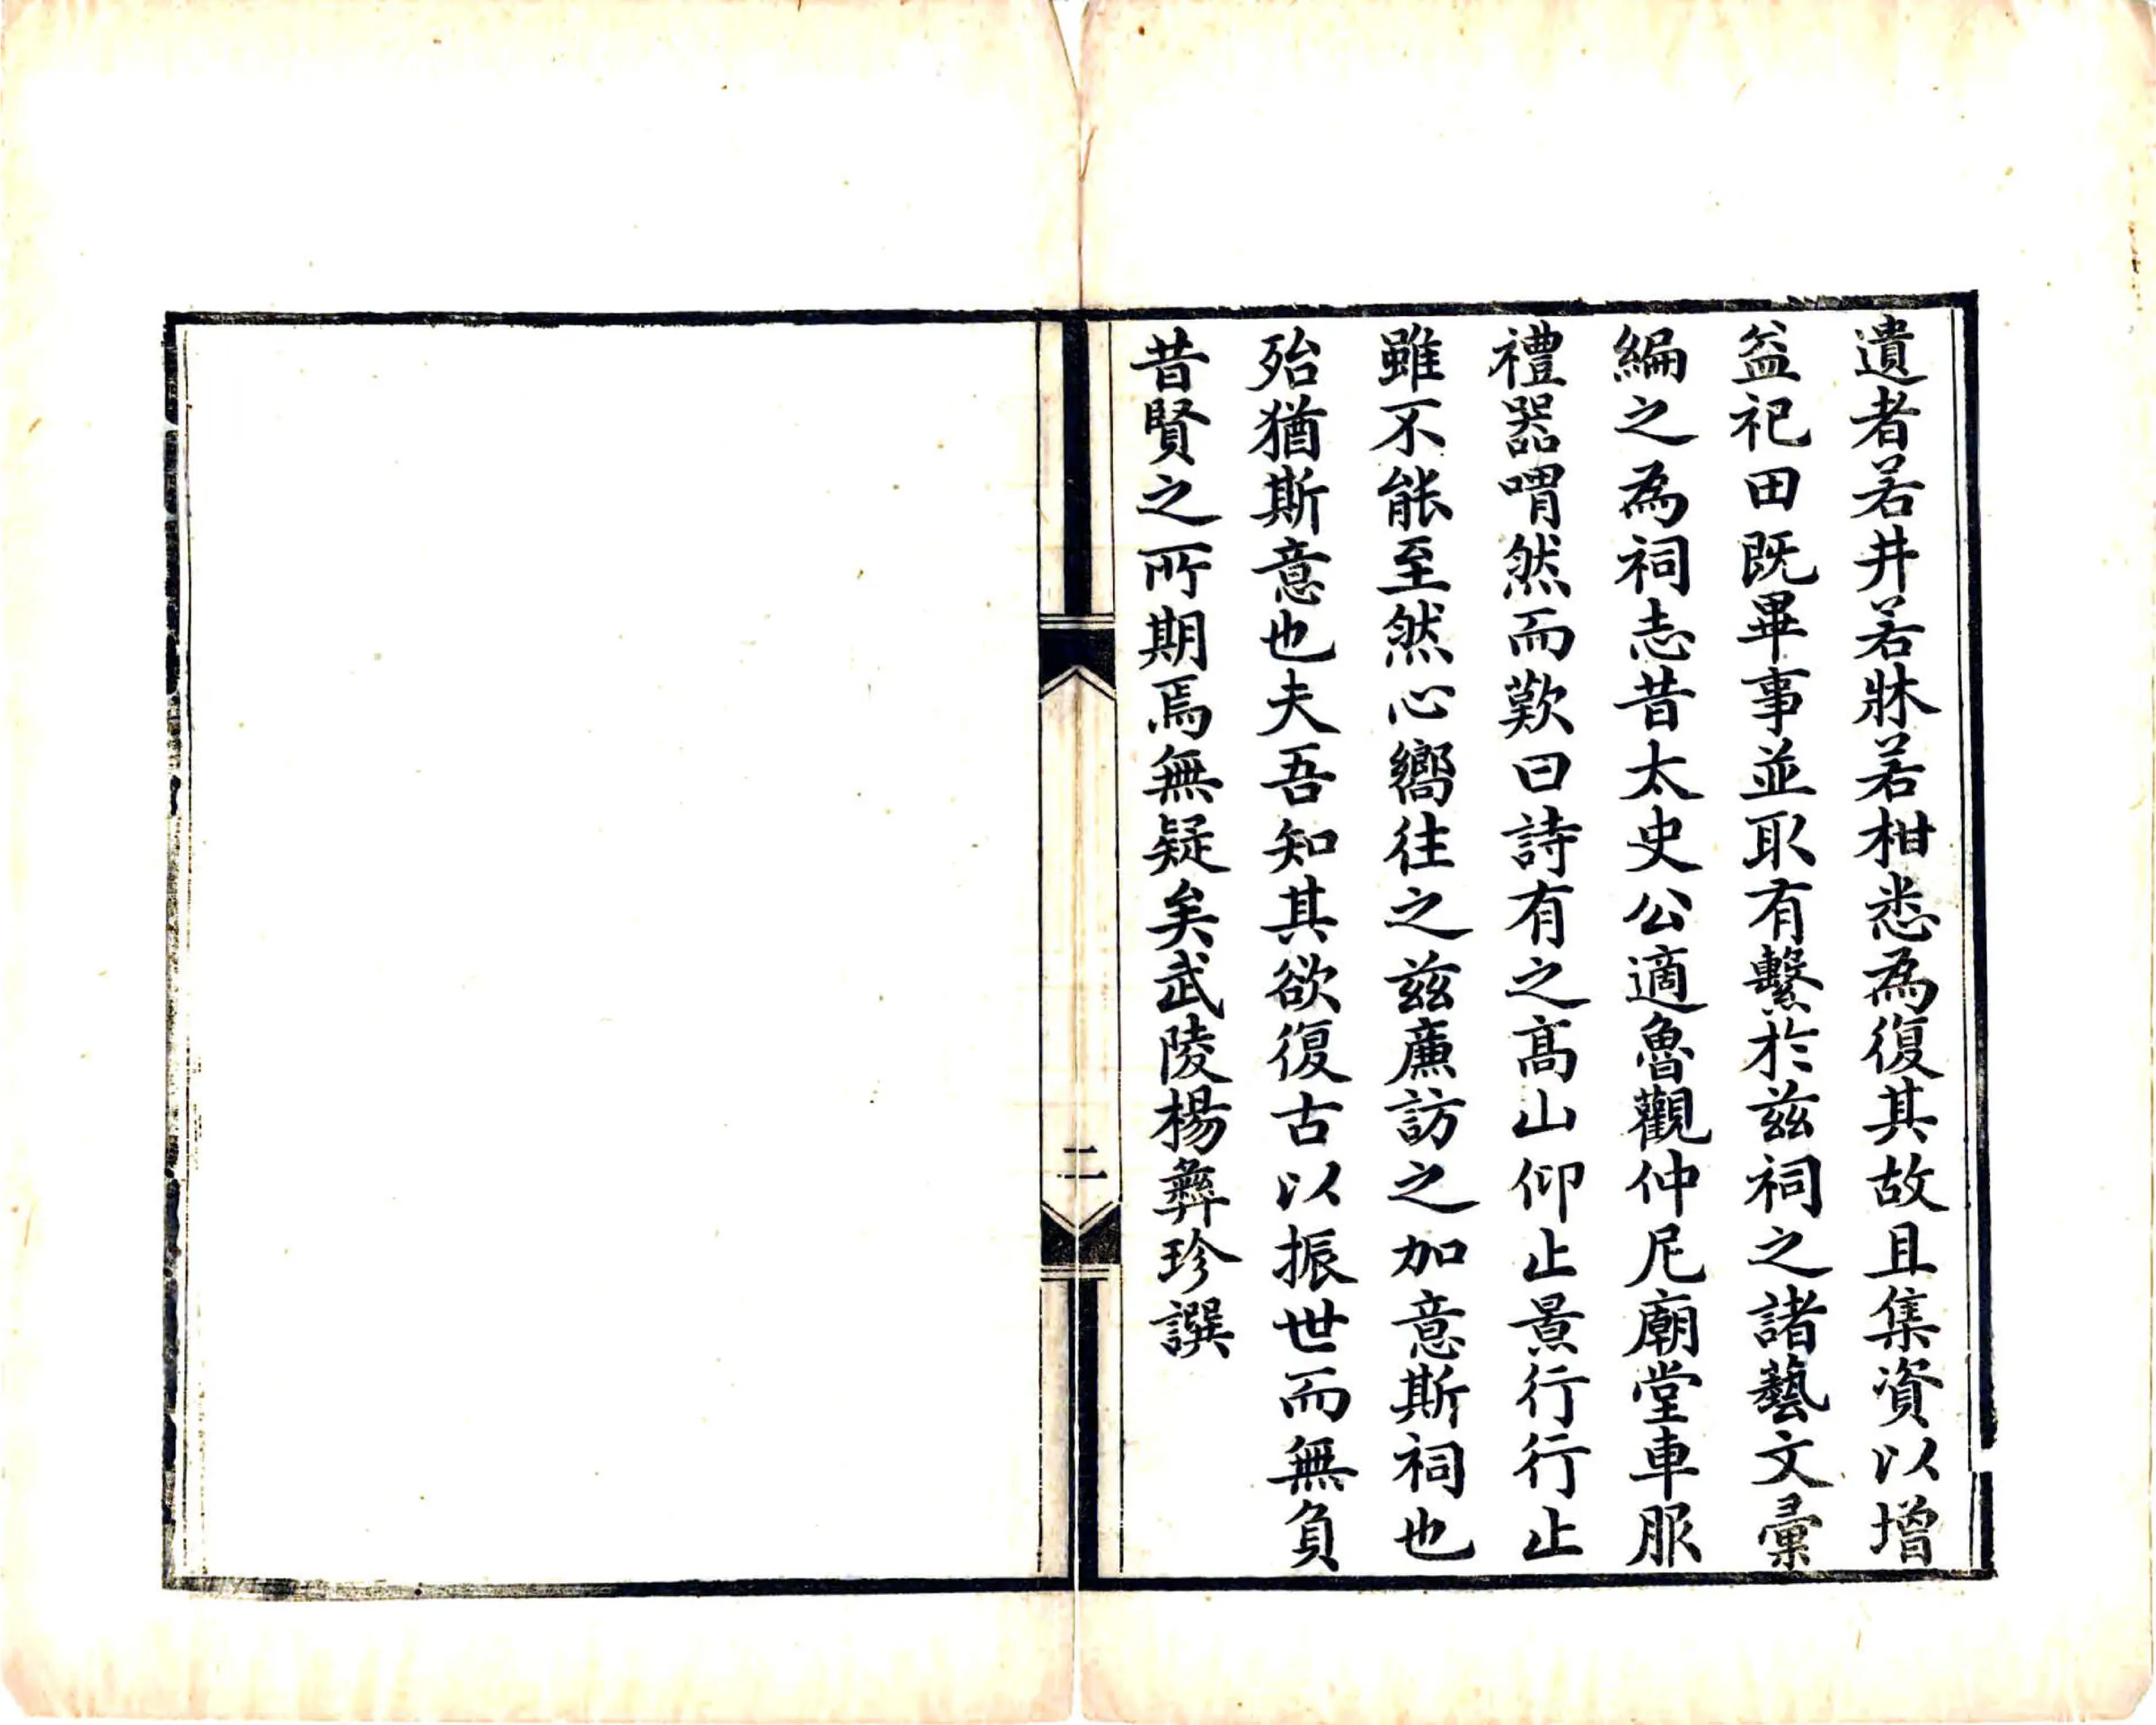 遺者若井若牀若柑悉為復其故且集資以增
益祀田既畢事並取有繫於兹祠之諸藝文彙
編之為祠志昔太史公適魯觀仲尼廟堂車服
禮器喟然而歎曰詩有之高山仰止景行行止
雖不能至然心嚮往之兹廉訪之加意斯祠也
殆猶斯意也夫吾知其欲復古以振世而無負
昔賢之所期焉無疑矣武陵楊彝珍譔
二